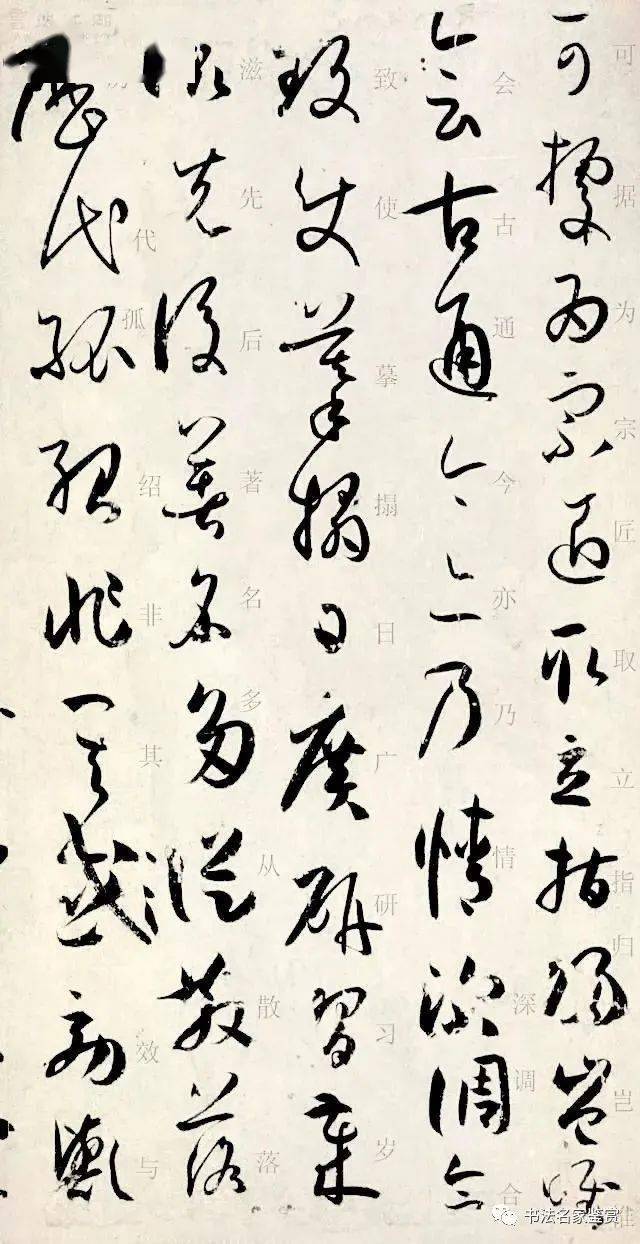 可據為宗匠取立指歸豈惟
可据为宗匠取立指归岂惟
會古通今亦乃情深調合
会古通今亦乃情深调合
致使摹搨日廣研習歲
致使摹搨日广研习岁
滋先後著名多從散落
滋先后著名多从散落
歷代孤紹非其效與
历代孤绍非其效与
书法名家鉴赏